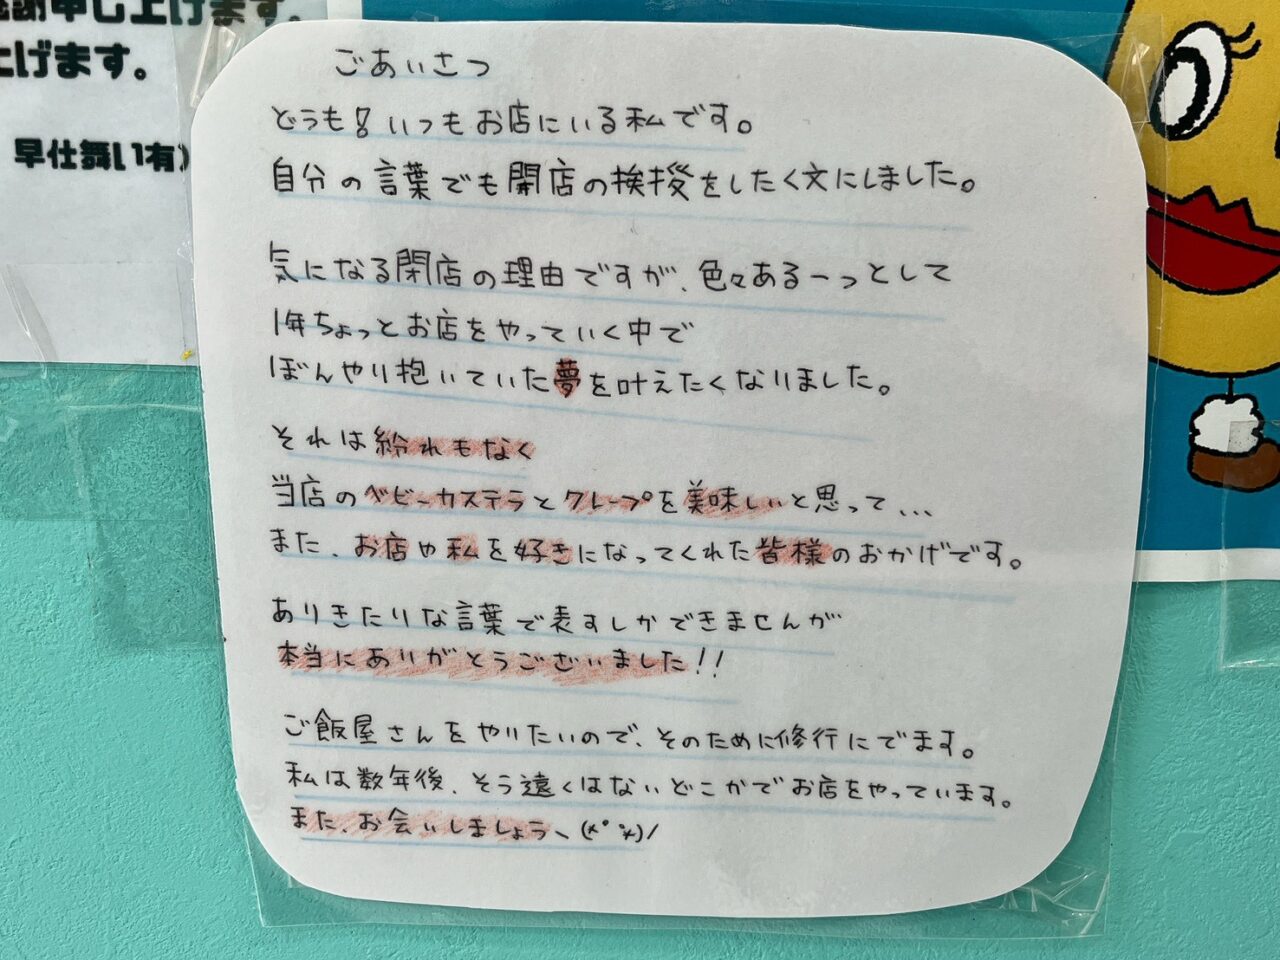 感謝申し上げます。
上げます。
早仕舞い有)
ごあいさつ
どうも!いつもお店にいる私です。
自分の言葉でも閉店の挨拶をしたく文にしました。
気になる閉店の理由ですが、色々あるーっとして
1年ちょっとお店をやっていく中で
ぼんやり抱いていた夢を叶えたくなりました。
それは紛れもなく
当店のベビーカステラとクレープを美味しいと思って...
また、お店や私を好きになってくれた皆様のおかげです。
ありきたりな言葉で表すしかできませんが
本当にありがとうございました!!
ご飯屋さんをやりたいので、そのために修行にでます。
私は数年後、そう遠くはないどこかでお店をやっています。
また、お会いしましょうヽ(*゚*)ノ